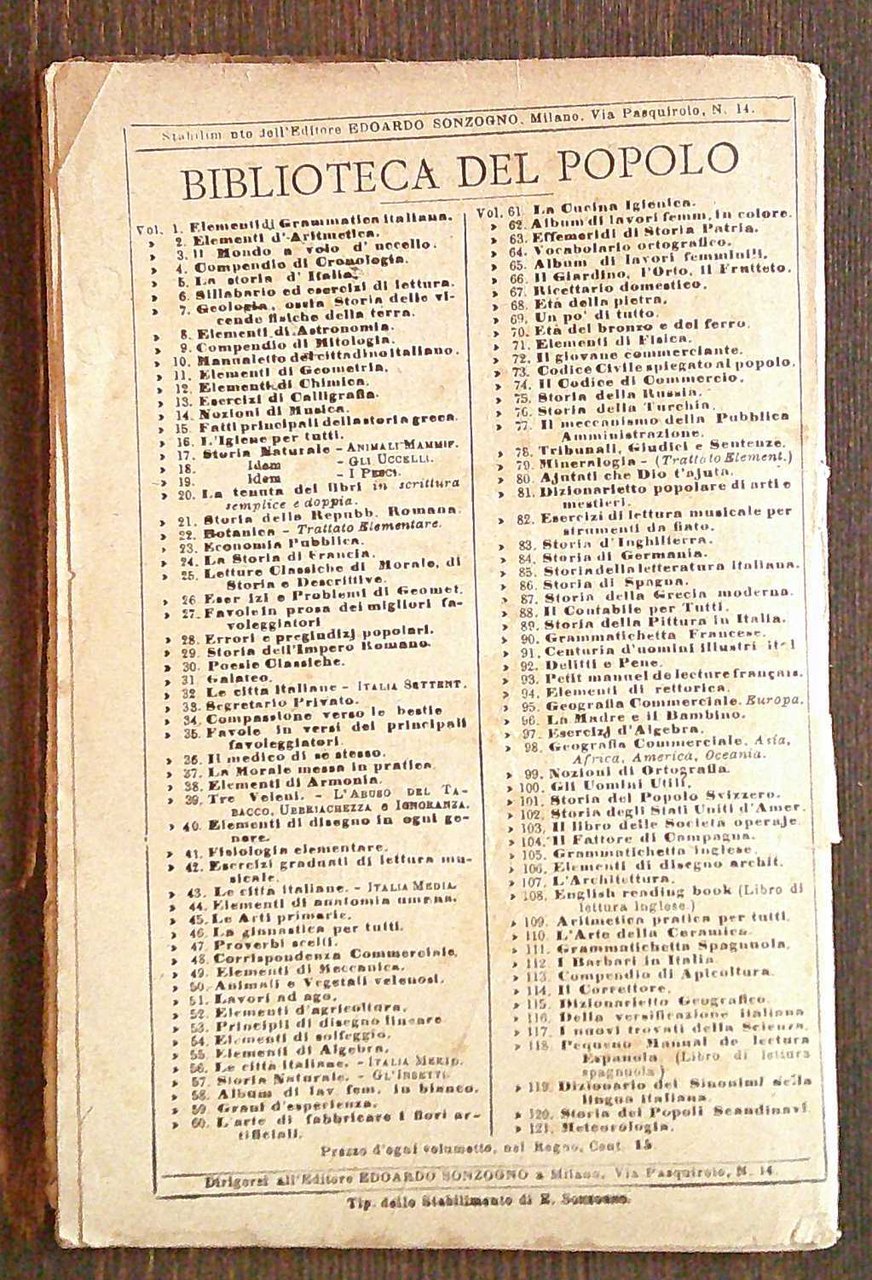 Stabilim nto dell'Editore EDOARDO SONZOGNO, Milano, Via Pasquirolo, N. 14.
BIBLIOTECA DEL POPOLO
Vol. 1. Elementi di Grammatica italiana.
» 2. Elementi d'Aritmetica.
» 3. Il Mondo a volo d'uccello.
» 4. Compendio di Cronologia.
» 5. La storia d'Italia.
» 6. Sillabario ed esercizi di lettura.
» 7. Geologia, ossia Storia delle vi-
cende fisiche della terra.
» 8. Elementi di Astronomia.
» 9. Compendio di Mitologia.
» 10. Manualetto del cittadino italiano.
» 11. Elementi di Geometria.
» 12. Elementi di Chimica.
» 13. Esercizi di Calligrafia.
» 14. Nozioni di Musica.
» 15. Fatti principali della storia greca.
» 16. L'Igiene per tutti.
» 17. Storia Naturale - ANIMALI MAMMIF.
» 18. Idem - GLI UCCELLI.
» 19. Idem - I PESCI.
» 20. La tenuta dei libri in scrittura
semplice e doppia.
» 21. Storia della Repubb. Romana.
» 22. Botanica - Trattato Elementare.
» 23. Economia Pubblica.
» 24. La Storia di Francia.
» 25. Letture Classiche di Morale, di
Storia e Descrittive.
» 26 Eser izi e Problemi di Geomet.
» 27. Favole in prosa dei migliori fa-
voleggiatori
» 28. Errori e pregiudizj popolari.
» 29. Storia dell'Impero Romano.
» 30. Poesie Classiche.
» 31 Galateo.
» 32 Le città italiane - ITALIA SETTENT.
» 33. Segretario Privato.
» 34. Compassione verso le bestie
» 35. Favole in versi dei principali
favoleggiatori.
» 36. Il medico di se stesso.
» 37. La Morale messa in pratica.
» 38. Elementi di Armonia.
» 39. Tre Veleni. - L'ABUSO DEL TA-
BACCO, UBBRIACHEZZA e IGNORANZA.
» 40. Elementi di disegno in ogni ge-
nere.
» 41. Fisiologia elementare.
» 42. Esercizi graduati di lettura mu-
sicale.
» 43. Le città italiane. - ITALIA MEDIA.
» 44. Elementi di anatomia umana.
» 45. Le Arti primarie.
» 46. La ginnastica per tutti.
» 47. Proverbi scelti.
» 48. Corrispondenza Commerciale.
» 49. Elementi di Meccanica.
» 50. Animali e Vegetali velenosi.
» 51. Lavori ad ago.
» 52. Elementi d'agricoltura.
» 53. Principii di disegno lineare
» 54. Elementi di solfeggio.
» 55. Elementi di Algebra.
» 56. Le città italiane. - ITALIA MERID.
» 57. Storia Naturale. - GL'INSETTI.
» 58. Album di lav fem. in bianco.
» 59. Grani d'esperienza.
» 60. L'arte di fabbricare i fiori ar-
tificiali.
Vol. 61. La Cucina Igienica.
» 62. Album di lavori femm. in colore.
» 63. Effemeridi di Storia Patria.
» 64. Vocabolario ortografico.
» 65. Album di lavori femminili.
» 66. Il Giardino, l'Orto, il Frutteto.
» 67. Ricettario domestico.
» 68. Età della pietra.
» 69. Un po' di tutto.
» 70. Età del bronzo e del ferro.
» 71. Elementi di Fisica.
» 72. Il giovane commerciante.
» 73. Codice Civile spiegato al popolo.
» 74. Il Codice di Commercio.
» 75. Storia della Russia.
» 76. Storia della Turchia.
» 77. Il meccanismo della Pubblica
Amministrazione.
» 78. Tribunali, Giudici e Sentenze.
» 79. Mineralogia - (Trattato Element.)
» 80. Ajutati che Dio t'ajuta.
» 81. Dizionarietto popolare di arti e
mestieri.
» 82. Esercizi di lettura musicale per
strumenti da fiato.
» 83. Storia d'Inghilterra.
» 84. Storia di Germania.
» 85. Storia della letteratura italiana.
» 86. Storia di Spagna.
» 87. Storia della Grecia moderna.
» 88. Il Contabile per Tutti.
» 89. Storia della Pittura in Italia.
» 90. Grammatichetta Francese.
» 91. Centuria d'uomini illustri it l
» 92. Delitti e Pene.
» 93. Petit manuel de lecture français.
» 94. Elementi di rettorica.
» 95. Geografia Commerciale. Europa.
» 96. La Madre e il Bambino.
» 97. Esercizj d'Algebra.
» 98. Geografia Commerciale. Asia,
Africa, America, Oceania.
» 99. Nozioni di Ortografia.
» 100. Gli Uomini Utili.
» 101. Storia del Popolo Svizzero.
» 102. Storia degli Stati Uniti d'Amer.
» 103. Il libro delle Società operaje
» 104. Il Fattore di Campagna.
» 105. Grammatichetta inglese.
» 106. Elementi di disegno archit.
» 107. L'Architettura.
» 108. English reading book (Libro di
lettura inglese.)
» 109. Aritmetica pratica per tutti.
» 110. L'Arte della Ceramica.
» 111. Grammatichetta Spagnuola.
» 112 I Barbari in Italia.
» 113. Compendio di Apicoltura.
» 114. Il Correttore.
» 115. Dizionarietto Geografico.
» 116. Della versificazione italiana
» 117. I nuovi trovati della Scienza.
» 118. Pequeno Manual de lectura
Espanola (Libro di lettura
spagnuola)
» 119. Dizionario dei Sinonimi della
lingua italiana.
» 120. Storia dei Popoli Scandinavi
» 121. Meteorologia.
Prezzo d'ogni volumetto, nel Regno, Cent. 15
Dirigersi all'Editore EDOARDO SONZOGNO a Milano, Via Pasquirolo, N. 14
Tip. dello Stabilimento di E. Sonzogno.